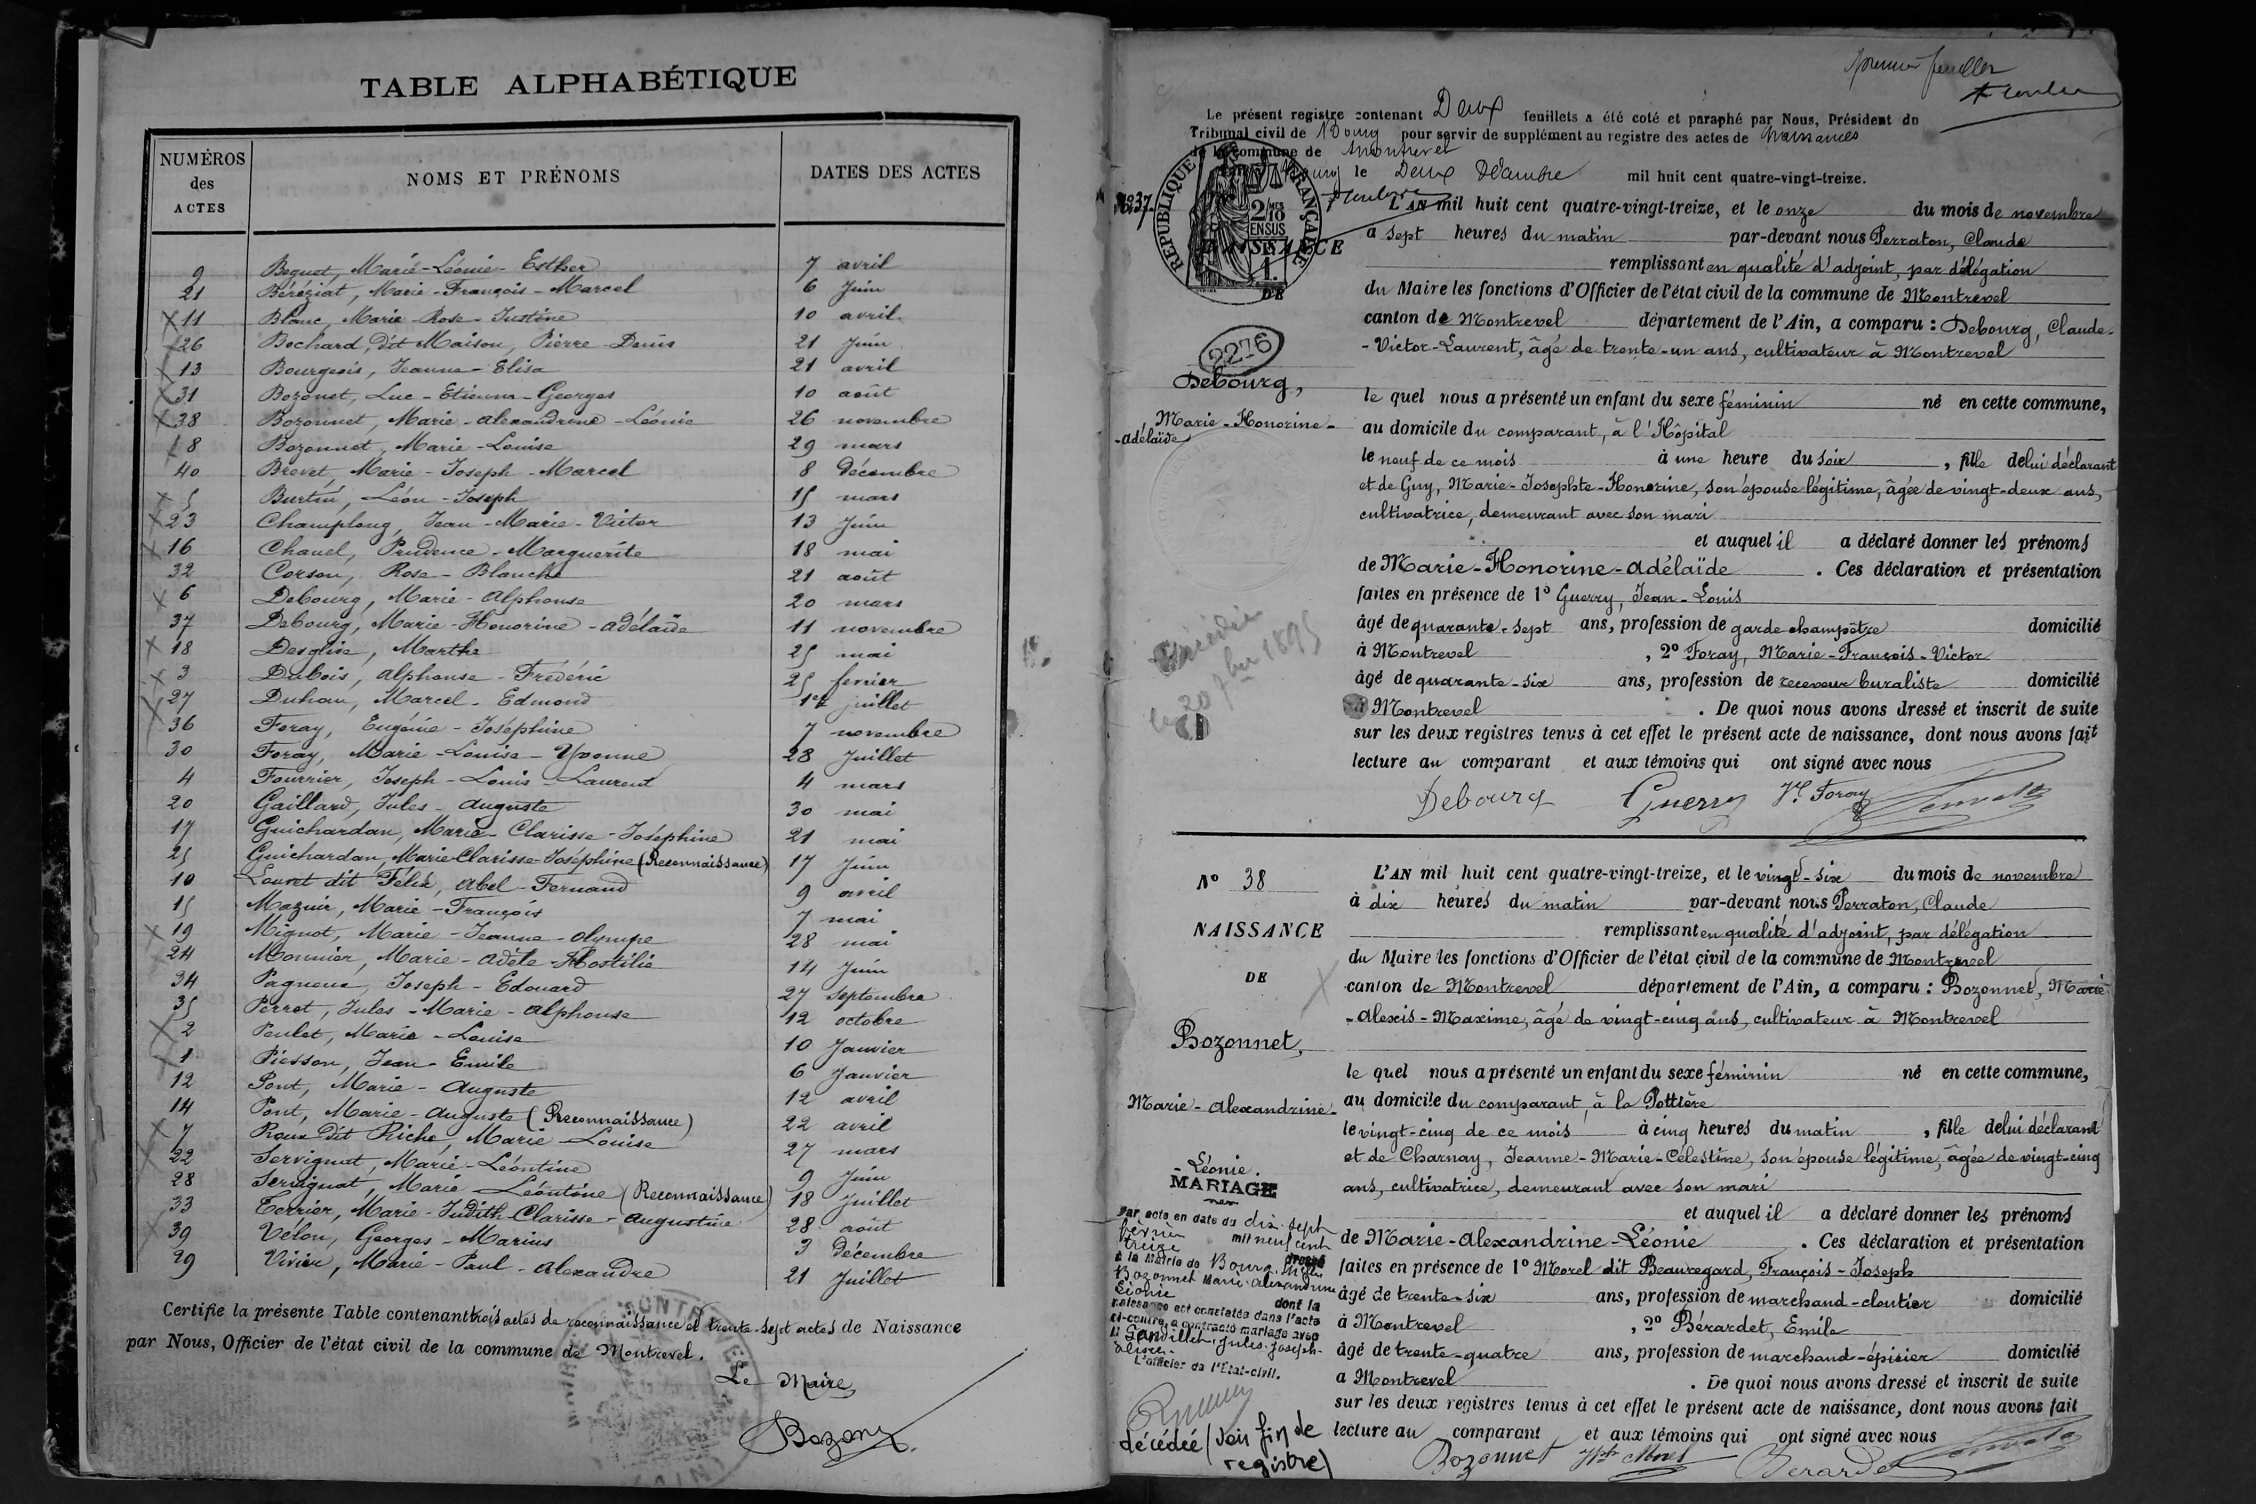 TABLE ALPHABÉTIQUE
NUMÉROS des ACTES
NOMS ET PRÉNOMS
DATES DES ACTES
9 Beguet, Marie-Léonie-Esther 7 avril
21 Béréziat, Marie-François-Marcel 6 Juin
11 Blanc, Marie-Rose-Justine 10 avril
26 Bochard, dit Maison, Pierre-Denis 21 Juin
13 Bourgeois, Jeanne-Elisa 21 avril
31 Bozonet, Luc-Etienne-Georges 10 août
38 Bozonnet, Marie-Alexandrine-Léonie 26 novembre
8 Bozonnet, Marie-Louise 29 mars
40 Brevet, Marie-Joseph-Marcel 8 Décembre
5 Burtin, Léon-Joseph 15 mars
23 Champlong, Jean-Marie-Victor 13 Juin
16 Chanel, Prudence-Marguerite 18 mai
32 Corson, Rose-Blanche 21 août
6 Debourg, Marie-Alphonse 20 mars
37 Debourg, Marie-Honorine-Adélaïde 11 novembre
18 Desglise, Marthe 25 mai
3 Dubois, Alphonse-Frédéric 25 fevrier
27 Duhau, Marcel-Edmond 1er juillet
36 Foray, Eugénie-Joséphine 7 novembre
30 Foray, Marie-Louise-Yvonne 28 Juillet
4 Fourrier, Joseph-Louis-Laurent 4 mars
20 Gaillard, Jules-Auguste 30 mai
17 Guichardan, Marie-Clarisse-Joséphine 21 mai
25 Guichardan, Marie-Clarisse-Joséphine (Reconnaissance) 17 Juin
10 Louvet dit Félix, Abel-Fernand 9 avril
15 Mazuir, Marie-François 7 mai
19 Mignot, Marie-Jeanne-Olympe 28 mai
24 Monnier, Marie-Adèle-Hostilie 14 Juin
34 Pagneux, Joseph-Edouard 27 Septembre
35 Perret, Jules-Marie-Alphonse 12 octobre
2 Peulet, Marie-Louise 10 Janvier
1 Piesson, Jean-Emile 6 Janvier
12 Pont, Marie-Auguste 12 avril
14 Pont, Marie-Auguste (Reconnaissance) 22 avril
7 Roux dit Riche, Marie-Louise 27 mars
22 Servignat, Marie-Léontine 9 Juin
28 Servignat, Marie Léontine (Reconnaissance) 18 Juillet
33 Terrier, Marie-Judith-Clarisse-Augustine 28 août
39 Vélon, Georges-Marius 3 Décembre
29 Vivier, Marie-Paul-Alexandre 21 Juillet
Certifie la présente Table contenant trois actes de reconnaissance et trente-sept actes de Naissance
par Nous, Officier de l'état civil de la commune de Montrevel.
Le Maire,
Le présent registre contenant Deux feuillets a été coté et paraphé par Nous, Président du
Tribunal civil de Bourg pour servir de supplément au registre des actes de Naissances
de la commune de Montrevel
Bourg le Deux Décembre mil huit cent quatre-vingt-treize.
RÉPUBLIQUE FRANÇAISE
N° 37
NAISSANCE
DE
2276
Debourg,
Marie-Honorine-
-Adélaïde
Décédée
le 20 7bre 1895
L'AN mil huit cent quatre-vingt-treize, et le onze du mois de novembre
à sept heures du matin par-devant nous Perraton, Claude
remplissant en qualité d'adjoint, par délégation
du Maire les fonctions d'Officier de l'état civil de la commune de Montrevel
canton de Montrevel département de l'Ain, a comparu : Debourg, Claude-
-Victor-Laurent, âgé de trente-un ans, cultivateur à Montrevel
le quel nous a présenté un enfant du sexe féminin né en cette commune,
au domicile du comparant, à l'Hôpital
le neuf de ce mois à une heure du soir, fille de lui déclarant
et de Guy, Marie-Josephte-Honorine, son épouse légitime, âgée de vingt-deux ans,
cultivatrice, demeurant avec son mari
et auquel il a déclaré donner les prénoms
de Marie-Honorine-Adélaïde. Ces déclaration et présentation
faites en présence de 1° Guerry, Jean-Louis
âgé de quarante-sept ans, profession de garde champêtre domicilié
à Montrevel, 2° Foray, Marie-François-Victor
âgé de quarante-six ans, profession de receveur buraliste domicilié
à Montrevel. De quoi nous avons dressé et inscrit de suite
sur les deux registres tenus à cet effet le présent acte de naissance, dont nous avons fait
lecture au comparant et aux témoins qui ont signé avec nous
Debourg Guerry Vr Foray
N° 38
NAISSANCE
DE
Bozonnet,
Marie-Alexandrine-
-Léonie.
MARIAGE
Par acte en date du dix-sept
février mil neuf cent
treize dressé
à la Mairie de Bourg, Melle
Bozonnet Marie-Alexandrine
Léonie dont la
naissance est constatée dans l'acte
ci-contre, a contracté mariage avec
L'officier de l'Etat-civil.
décédée (voir fin de
registre)
L'AN mil huit cent quatre-vingt-treize, et le vingt-six du mois de novembre
à dix heures du matin par-devant nous Perraton, Claude
remplissant en qualité d'adjoint, par délégation
du Maire les fonctions d'Officier de l'état civil de la commune de Montrevel
canton de Montrevel département de l'Ain, a comparu : Bozonnet, Marie-
-Alexis-Maxime, âgé de vingt-cinq ans, cultivateur à Montrevel
le quel nous a présenté un enfant du sexe féminin né en cette commune,
au domicile du comparant, à la Pottière
le vingt-cinq de ce mois à cinq heures du matin, fille de lui déclarant
et de Charnay, Jeanne-Marie-Célestine, son épouse légitime, âgée de vingt-cinq
ans, cultivatrice, demeurant avec son mari
et auquel il a déclaré donner les prénoms
de Marie-Alexandrine-Léonie. Ces déclaration et présentation
faites en présence de 1° Morel dit Beauregard, François-Joseph
âgé de trente-six ans, profession de marchand-cloutier domicilié
à Montrevel, 2° Bérardet, Emile
âgé de trente-quatre ans, profession de marchand-épicier domicilié
à Montrevel. De quoi nous avons dressé et inscrit de suite
sur les deux registres tenus à cet effet le présent acte de naissance, dont nous avons fait
lecture au comparant et aux témoins qui ont signé avec nous
Bozonnet Morel Berardet